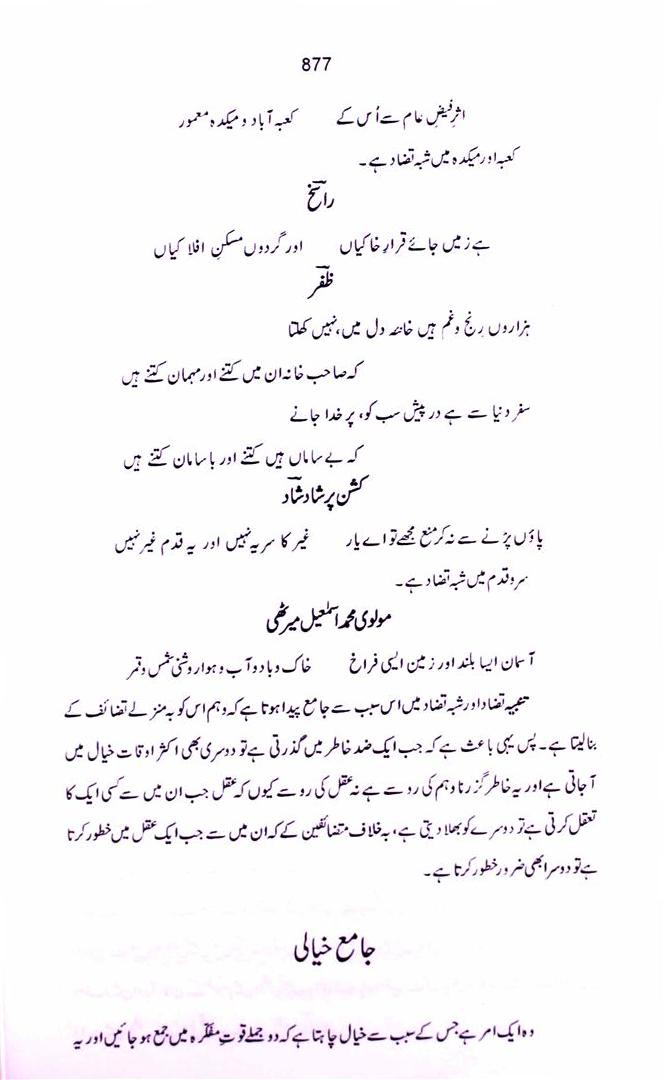 877
اثرِ فیضِ عام سے اُس کے کعبہ آباد و میکدہ معمور
کعبہ اور میکدہ میں شبہ تضاد ہے۔
راسخؔ
ہے زمیں جائے قرارِ خاکیاں اور گردوں مسکنِ افلاکیاں
ظفرؔ
ہزاروں رنج و غم ہیں خانہ دل میں، نہیں کھلتا
کہ صاحب خانہ ان میں کتنے اور مہمان کتنے ہیں
سفر دنیا سے ہے درپیش سب کو، پر خدا جانے
کہ بے ساماں ہیں کتنے اور باسامان کتنے ہیں
کشن پرشاد شادؔ
پاؤں پڑنے سے نہ کر منع مجھے تو اے یار غیر کا سر یہ نہیں اور یہ قدم غیر نہیں
سر و قدم میں شبہ تضاد ہے۔
مولوی محمد اسمٰعیل میرٹھی
آسمان ایسا بلند اور زمین ایسی فراخ خاک و باد و آب و ہوا و روشنی شمس و قمر
تنبیہ تضاد اور شبہ تضاد میں اس سبب سے جامع پیدا ہوتا ہے کہ وہم اس کو بہ منزلے تضائف کے
بنا لیتا ہے۔ پس یہی باعث ہے کہ جب ایک ضد خاطر میں گذرتی ہے تو دوسری بھی اکثر اوقات خیال میں
آ جاتی ہے اور یہ خاطر گزرنا وہم کی رو سے ہے نہ عقل کی رو سے کیوں کہ عقل جب ان میں سے کسی ایک کا
تعقل کرتی ہے تو دوسرے کو بھلا دیتی ہے، بہ خلاف متضائفین کے کہ ان میں سے جب ایک عقل میں خطور کرتا
ہے تو دوسرا بھی ضرور خطور کرتا ہے۔
جامع خیالی
وہ ایک امر ہے جس کے سبب سے خیال چاہتا ہے کہ دو جملے قوتِ مفکّرہ میں جمع ہو جائیں اور یہ